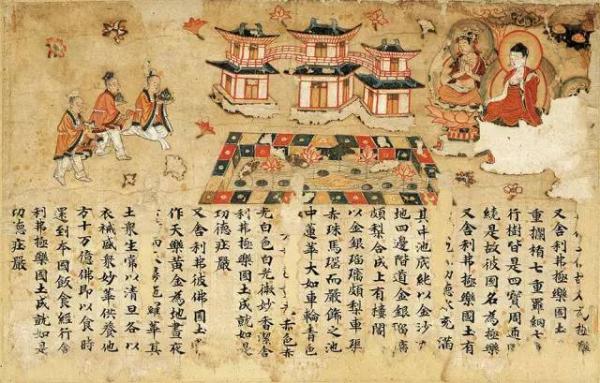 極樂
又舍利弗極樂國土
重攔楯七重羅網七
行樹皆是四寶周匝
繞是故彼國名為極樂
又舍利弗極樂國土有
充滿
其中池底純以金沙
地四邊階道金銀瑠璃
頗梨合成上有樓閣
以金銀瑠璃頗梨車
赤珠馬瑙而嚴飾之池
中蓮華大如車輪青色
赤色赤
光白色白光微妙香潔舍
利弗極樂國土成就如是
功德莊嚴
又舍利弗彼佛國土
作天樂黃金為地晝夜
雨 華其
土衆生常以清旦各以
衣裓盛衆妙華供養他
方十万億佛即以食時
還到本國飯食經行舍
利弗極樂國土成就如是
功德莊嚴